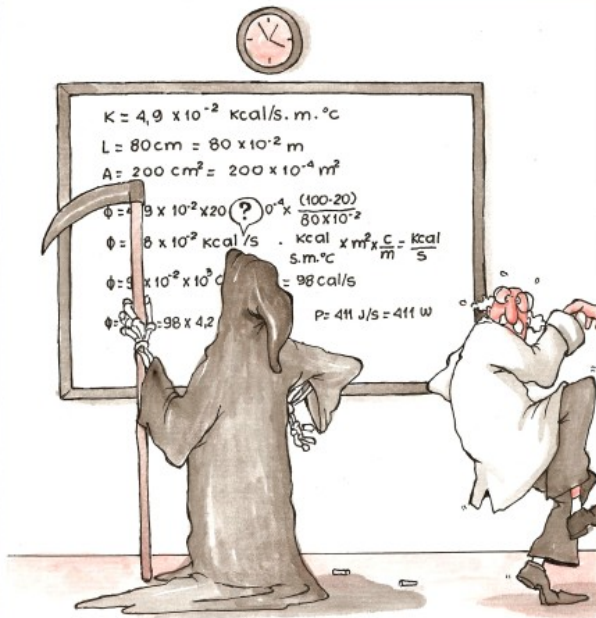 K = 4,9 x 10⁻² Kcal/s. m. °c
L = 80cm = 80 x 10⁻² m
A = 200 cm² = 200 x 10⁻⁴ m²
ϕ=4 9 x 10⁻² x 20 ? 0⁻⁴ x (100-20)/80x10⁻²
ϕ= 8 x 10⁻² Kcal/s . Kcal/s.m.°c x m² x c/m = Kcal/s
ϕ=9 x 10⁻² x 10³ c = 98 cal/s
ϕ= =98 x 4,2 P= 411 J/s = 411 W